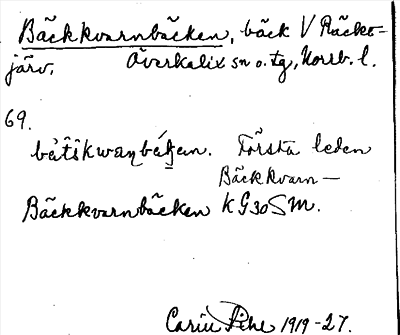 Bäckkvarnbäcken, bäck V Räckt-
järv, Överkalix sn o. tg, Norrb. l.
69.
Första leden
Bäckkvarn-
Bäckkvarnbäcken KG30SM.
Carin Pihl 1919-27.